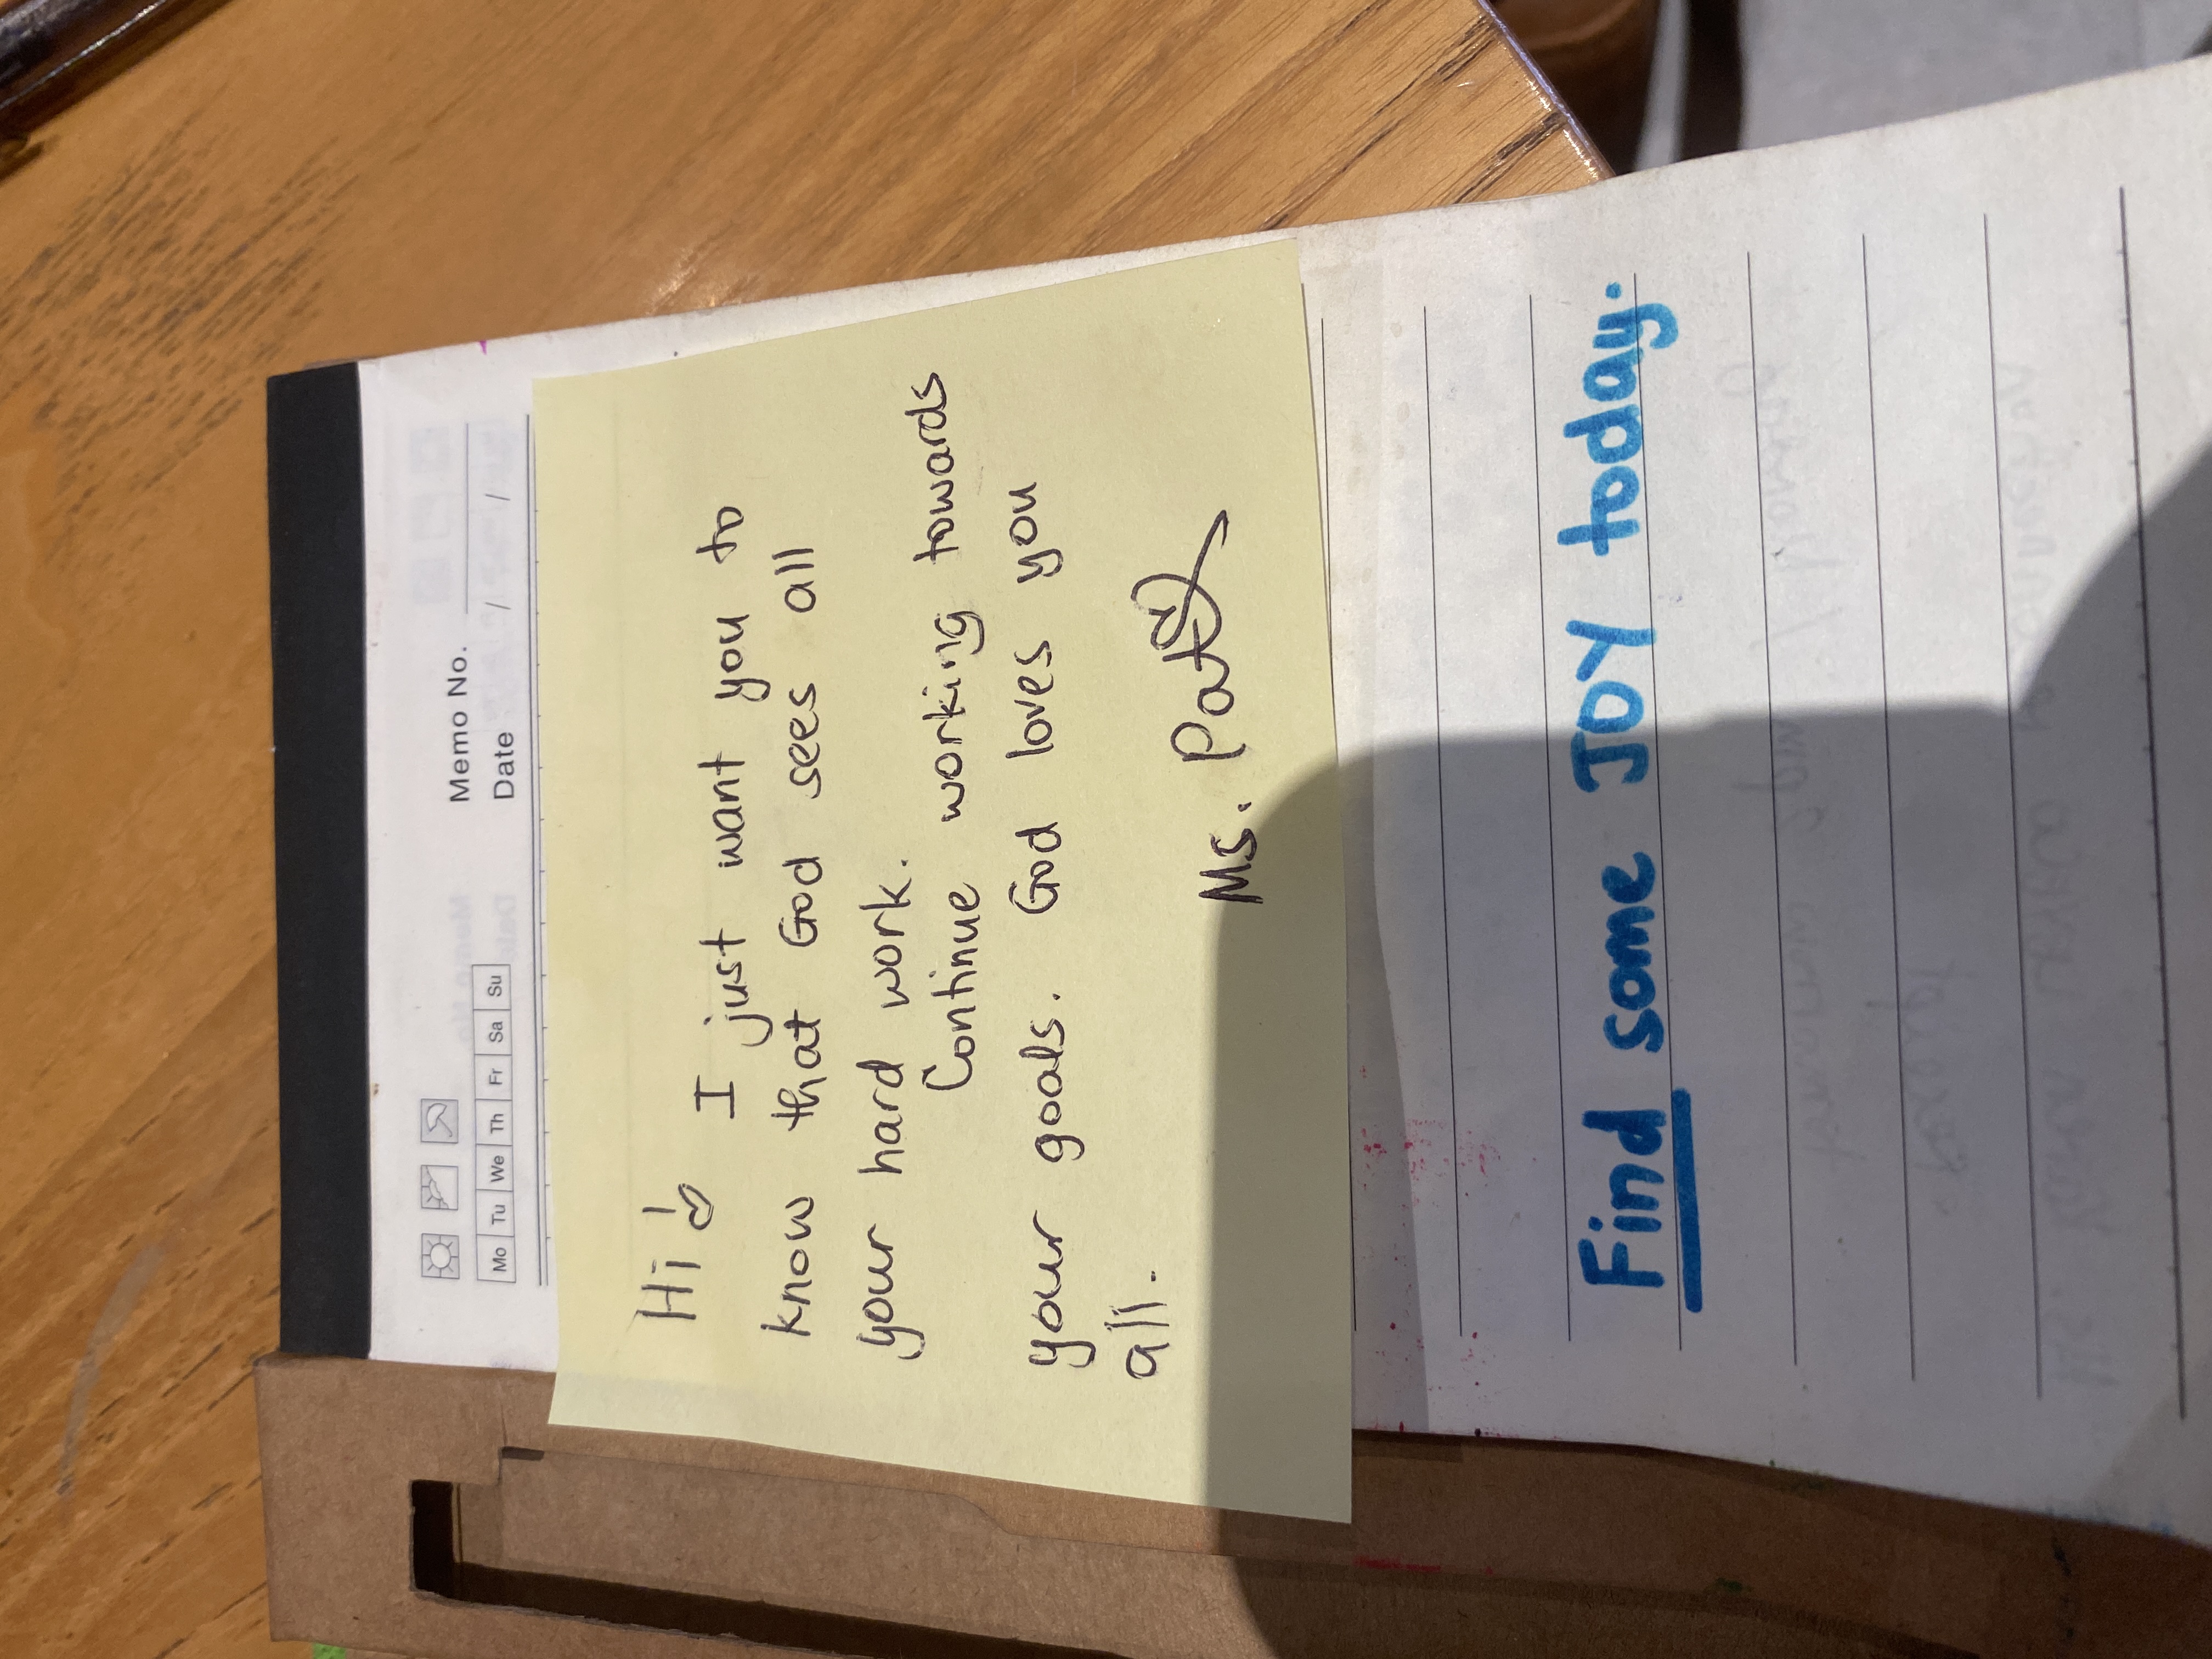 Memo No.
Mo Tu We Th Fr Sa Su
Date / /
Hi!
I just want you to
know that God sees all
your hard work.
Continue working towards
your goals. God loves you
all.
Ms. Pat
Find some JOY today.